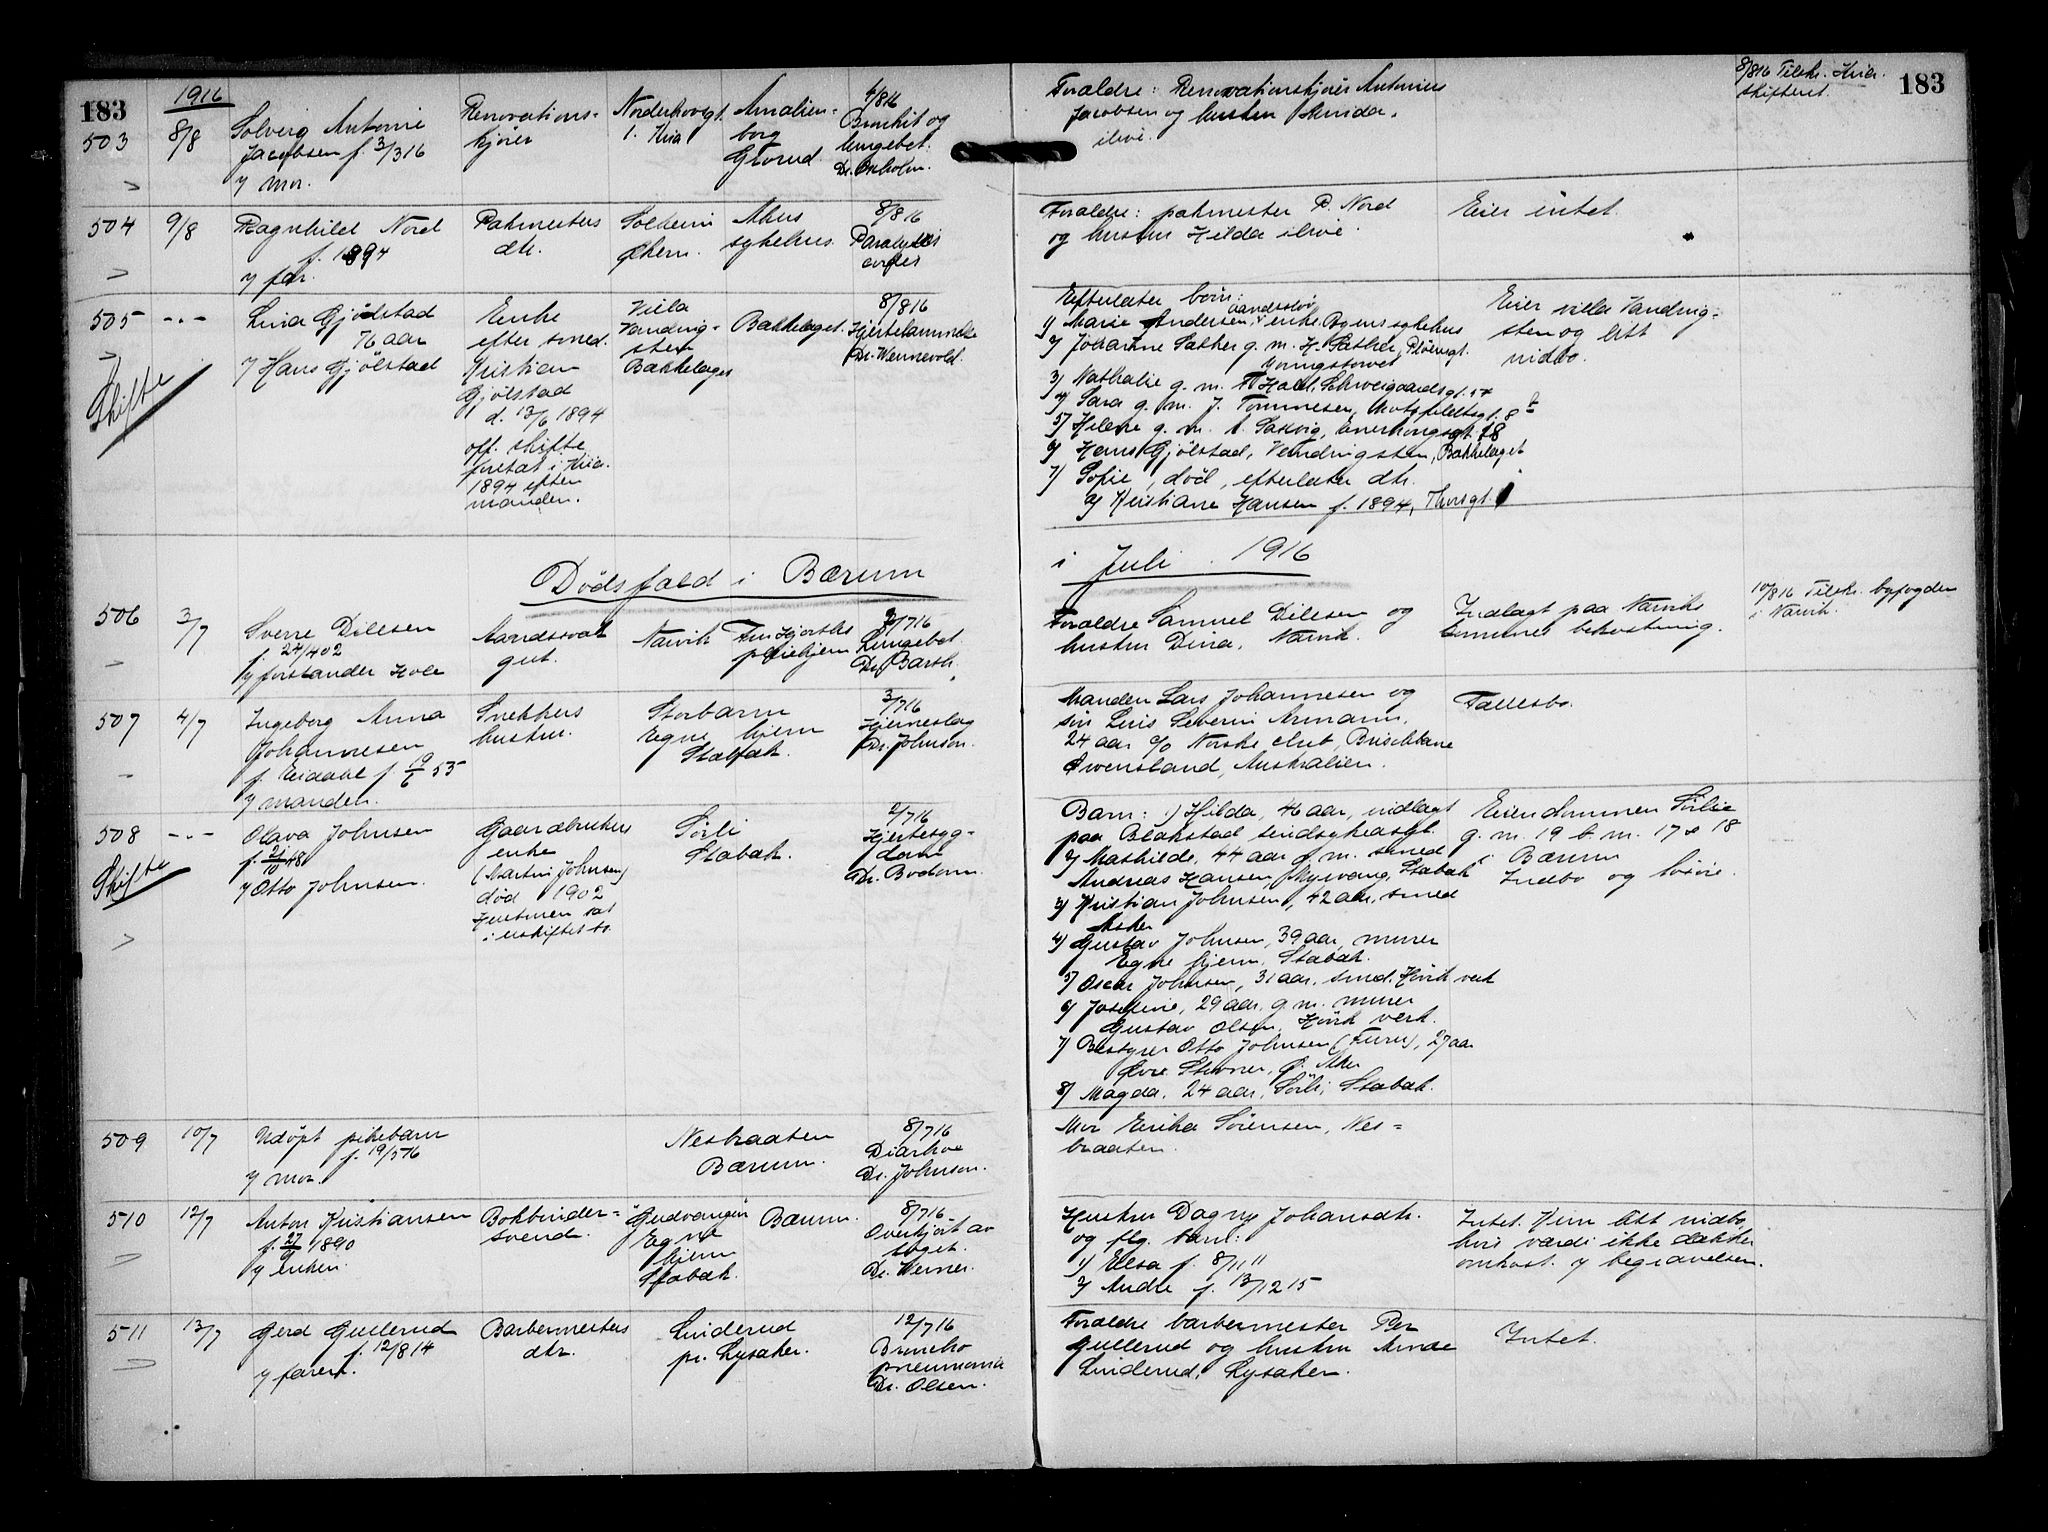 183
1916
503
8/8
Solveig Antonie
Jacobsen f. 3/3 16
v/ mor.
Renovations-
kjører
Norderhovsgt.
1. Kria
Amalien-
borg
Grorud
4/8 16
Bronkit og
lungebet.
Foreldre: Renovationskjører Antonius
Jacobsen og hustru
ilive.
8/8 16 Tilskr. Kria.
skifteret.
183
504
9/8
Ragnhild Nord
f. 1894
v/ far.
Pakmesters
dtr.
Solheim
Økern.
Akers
sykehus.
8/8 16
Paralysis
cordis
Foreldre: pakmester P. Nord
og hustru Hilda ilive.
Eier intet.
505
-"-
Lina Gjølstad
76 aar
v/ Hans Gjølstad
Skifte
Enke
efter smed.
Kristian
Gjølstad
d. 13/6 1894
off. skifte
foretat i Kria.
1894 efter
manden.
Villa
Vandring-
sten
Bakkelaget
Bakkelaget.
8/8 16
Hjertelammelse
Dr. Wennevold.
Efterlater barn:
1) Marie Andersen, enke. Byens sykehus
2) Johanne Sæther g. m. H. Sæther, Pløensgt.
Youngstorvet
3) Nathalie g. m. Hall, Schweigaardsgt. 54
4) Sara g. m. J. Tommesen, Motzfeldtsgt. 8 b
5) Helene g. m. 18
6) Hans Gjølstad, Vandringsten, Bakkelaget
7) Sofie, død, efterlater dtr.
a) Kristiane Hansen f. 1894, Thorsgt.
Eier villa Vandring-
sten og litt
indbo.
Dødsfald i Bærum
i Juli 1916
506
3/7
Sverre Dilesen
f. 24/4 02
v/ forstander Hole
Aandssvak
gut.
Narvik
Fru Hjorths
pleiehjem
2/7 16
Lungebet.
Dr. Barth.
Foreldre Samuel Dilesen og
hustru Dina, Narvik.
Indlagt paa Narviks
kommunes bekostning.
10/8 16 Tilskr. byfogden
i Narvik.
507
4/7
Ingeborg Anna
Johannesen
f. Eidahl f. 19/6 55
v/ manden.
Snekkers
hustru.
Storbarn
Egne hjem
Stabæk.
3/7 16
Hjerneslag
Dr. Johnson.
Manden Lars Johannesen og
søn Luis Severin Armann,
24 aar c/o Norske club, Brischbane
Qwensland, Australien.
Fællesbo.
508
-"-
Olava Johnsen
f. 21/10 48
v/ Otto Johnsen.
Skifte
Gaardbrukers
enke
(Martin Johnsen)
død 1902
Hustruen sat
i uskiftet bo.
Sørli
Stabæk.
2/7 16
Hjertesyg-
dom
Dr. Bodom.
Barn: 1) Hilda, 46 aar, indlagt
paa Blakstad sindsykeasyl.
2) Mathilde, 44 aar g. m. smed
Andreas Hansen, Myrvang, Stabæk
3) Kristian Johnsen, 42 aar, smed
Asker
4) Gustav Johnsen, 39 aar, murer
Egne hjem, Stabæk.
5) Oscar Johnsen, 31 aar, smed, Høvik verk
6) Josefine, 29 aar, g. m. murer
Gustav Olsen, Høvik verk.
7) Bestyrer Otto Johnsen (Furu), 27 aar
Øvre Stovner, Ø. Aker
8) Magda, 24 aar, Sørli, Stabæk.
Eiendommen Sørlie
g. nr. 19 b. nr. 17 & 18
i Bærum
Indbo og løsøre.
509
10/7
Udøpt pikebarn
f. 19/5 16
v/ mor.
Nesbraaten
Bærum.
8/7 16
Diarhoe
Dr. Johnson.
Mor Erika Sørensen, Nes-
braaten.
510
12/7
Anton Kristiansen
f. 27/9 1890
v/ enken.
Bokbinder-
svend.
Gudvangen
Egne
hjem
Stabæk.
Bærum.
8/7 16
Overkjørt av
toget.
Dr. Werner.
Hustru Dagny Johansdtr.
og flg. barn:
1) Elsa f. 8/11 11
2) André f. 13/12 15
Intet. Kun litt indbo,
hvis værdi ikke dækker
omkost. v/ begravelsen.
511
13/7
Gerd Gullerud
f. 12/8 14
v/ faren.
Barbermesters
dtr.
Linderud
pr. Lysaker.
12/7 16
Broncho
pneumonia
Dr. Olsen.
Foreldre barbermester Per
Gullerud og hustru
Linderud, Lysaker.
Intet.